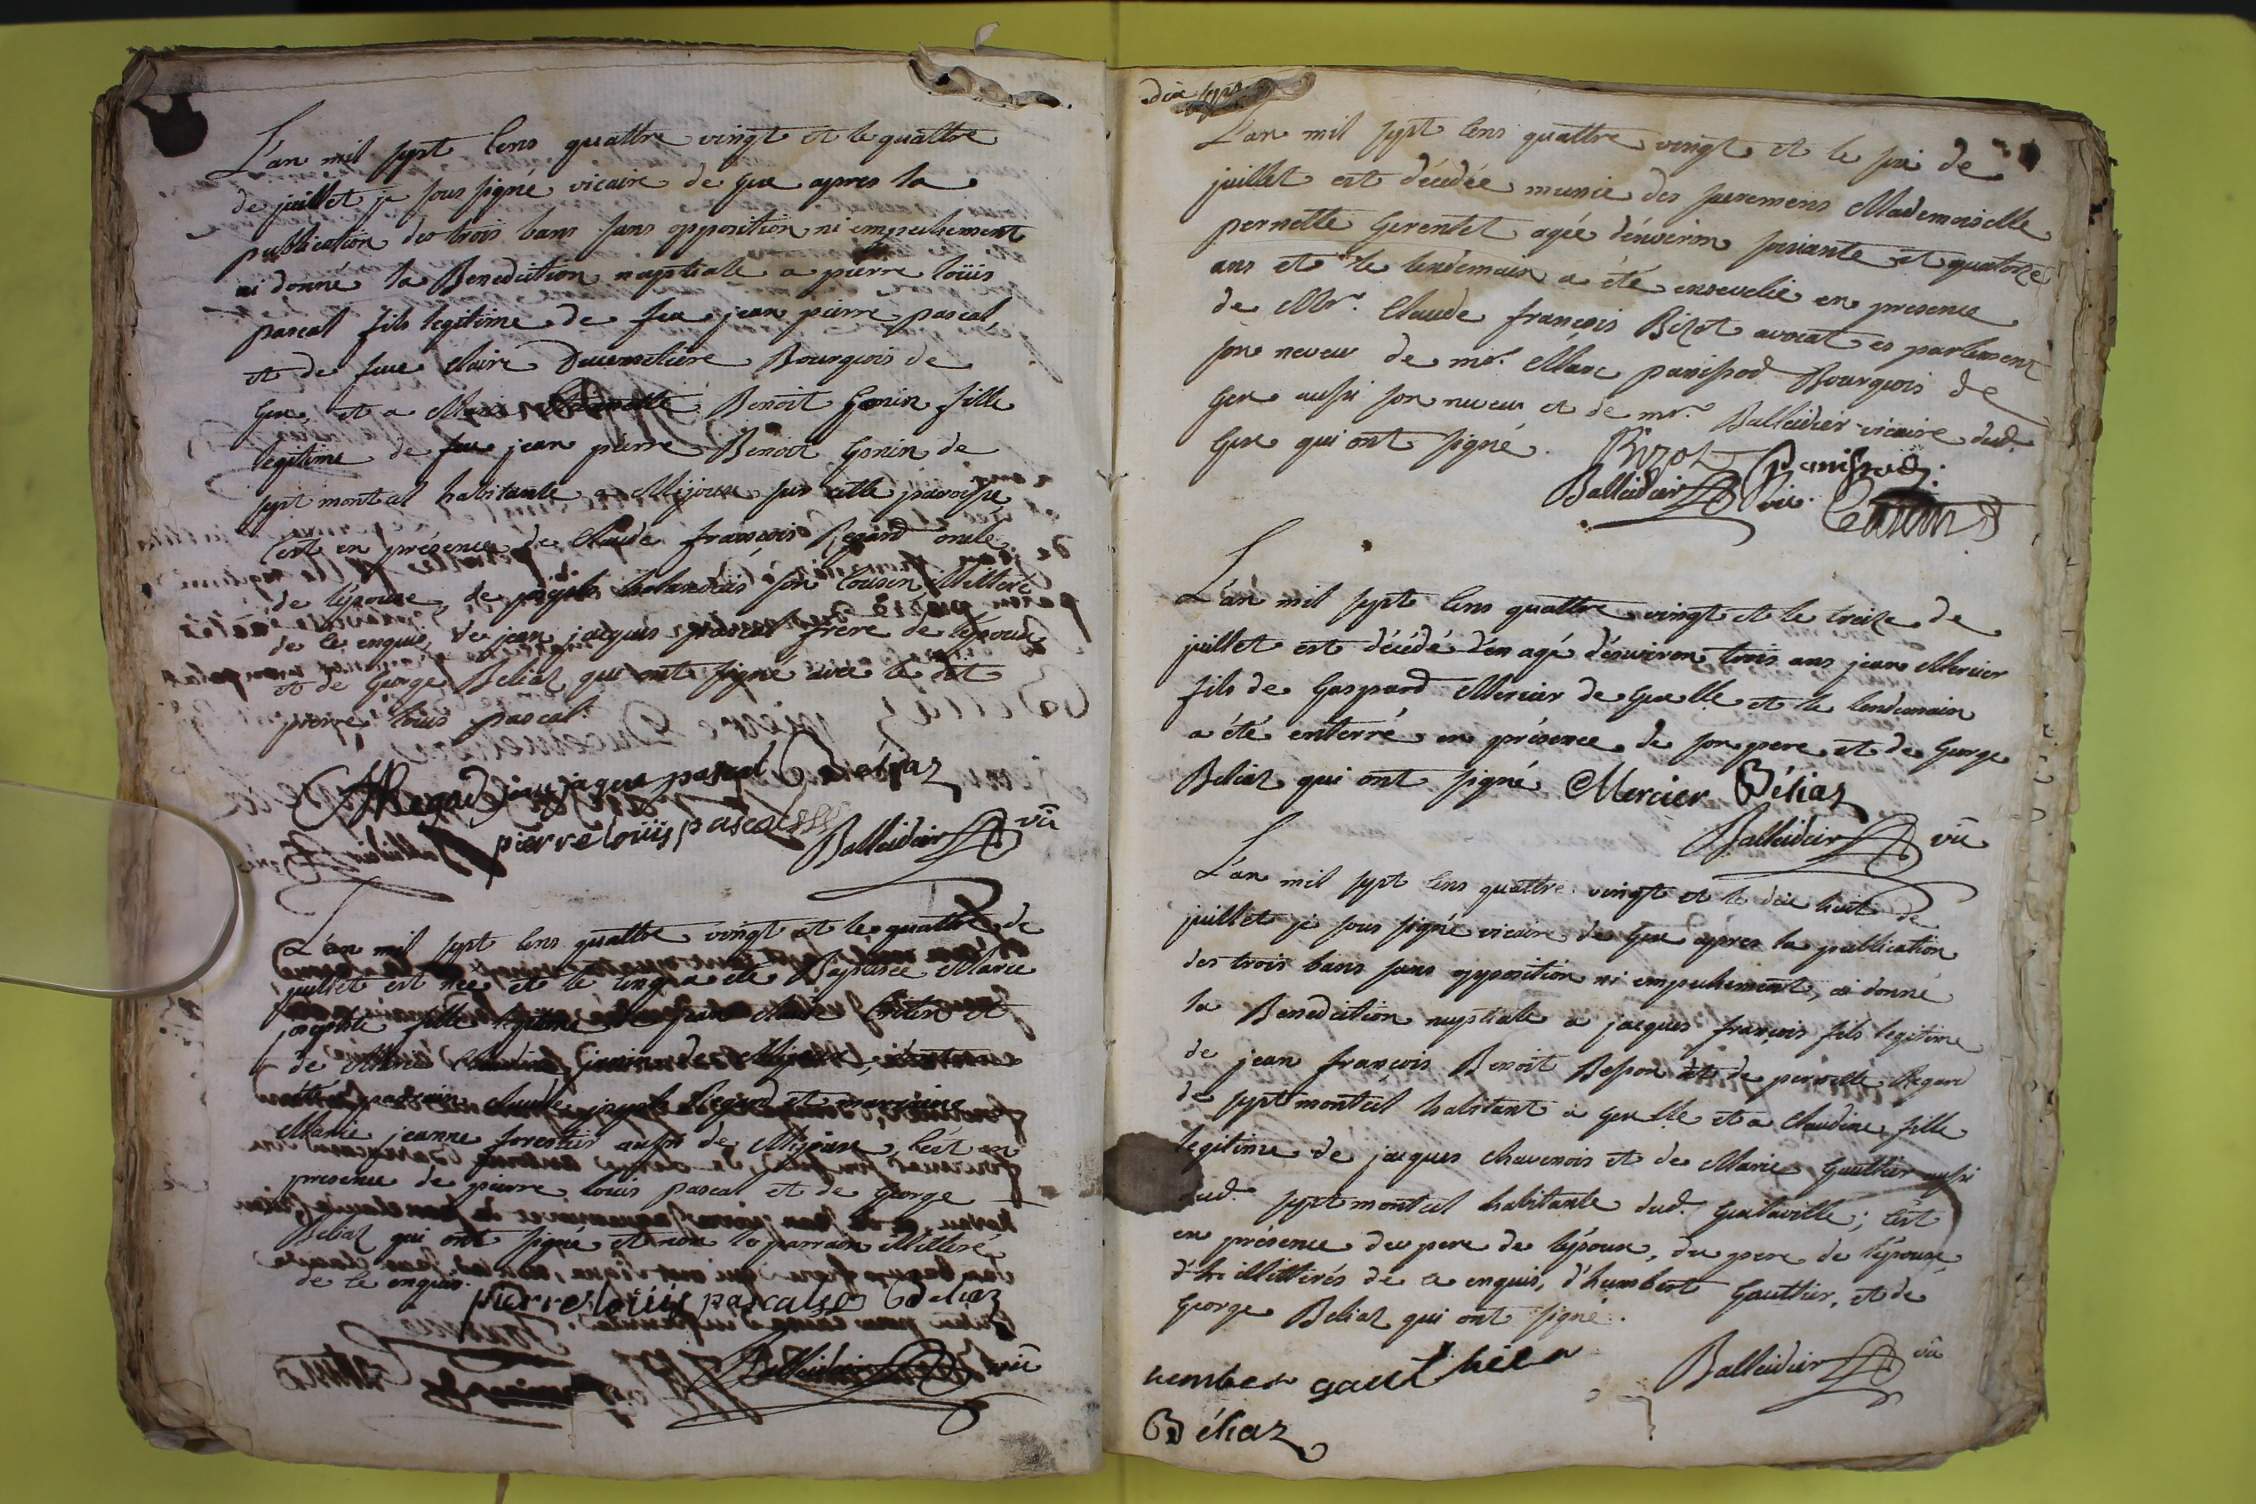 L'an mil sept cens quattre vingt et le quattre
de juillet je sous signé vicaire de Gex apres la
publication des trois bans sans opposition ni empechement
ai donné la Benediction nuptiale a pierre loüis
pascal fils legitime de feu jean pierre pascal
et de feue claire Ducemetiere Bourgeois de
Gex, et a Marie Benoit Gonin fille
legitime de feu jean pierre Benoit Gonin de
sept montcel habitante a Mijoux sur cette paroisse,
c'est en présence de Claude françois Regard oncle
de l'épouse, de joseph son cousin illiteré
de ce enquis, de jean jacques pascal frere de l'époux
et de George Beliaz qui ont signé avec le dit
pierre louis pascal.
Regad jean jaques pascal Béliaz
pierre loüis pascal Balleidier vic
L'an mil sept cens quattre vingt et le quattre de
juillet est née et le cinq a été Baptisée Marie
josephte fille legitime de jean claude
de Marie Claudine janin de Mijoux
parrain claude joseph Regard et marraine
Marie jeanne forestier aussi de Mijoux, c'est en
presence de pierre louis pascal et de George
Beliaz qui ont signé et non le parrain illiteré
de ce enquis.
pierre loüis pascal Béliaz
Balleidier vic
dix sept
L'an mil sept cens quattre vingt et le six de
juillet est décédée munie des sacremens Mademoiselle
pernette Gerentet agée d'environ soixante et quatorze
ans et le lendemain a été ensevelie en presence
de Mr. Claude françois Bizot avocat es parlement
son neveu de mr. Marc panissod Bourgeois de
Gex aussi son neveu et de mr. Balleidier vicaire dud.
Gex qui ont signé. Bizot Panissod
Balleidier vic.
L'an mil sept cens quattre vingt et le treize de
juillet est décédé agé d'environ trois ans jean Mercier
fils de Gaspard Mercier de Gex lle et le lendemain
a été enterré en présence de son pere et de George
Beliaz qui ont signé Mercier Béliaz
Balleidier vic
L'an mil sept cens quattre vingt et le dix huit de
juillet je sous signé vicaire de Gex apres la publication
des trois bans sans opposition ni empechement, ai donné
la Benediction nuptiale a jacques françois fils legitime
de jean françois Benoit Besson et de pernette Regard
de sept montcel habitant a Gex lle et a Claudine fille
legitime de jacques chavenois et de Marie Gauthier aussi
dud. sept montcel habitante dud. Gexlaville; c'est
en présence du pere de l'époux, du pere de l'épouse
illiterés de ce enquis, d'humbert Gauthier, et de
George Beliaz qui ont signé.
humber gauthiea Balleidier vic
Béliaz